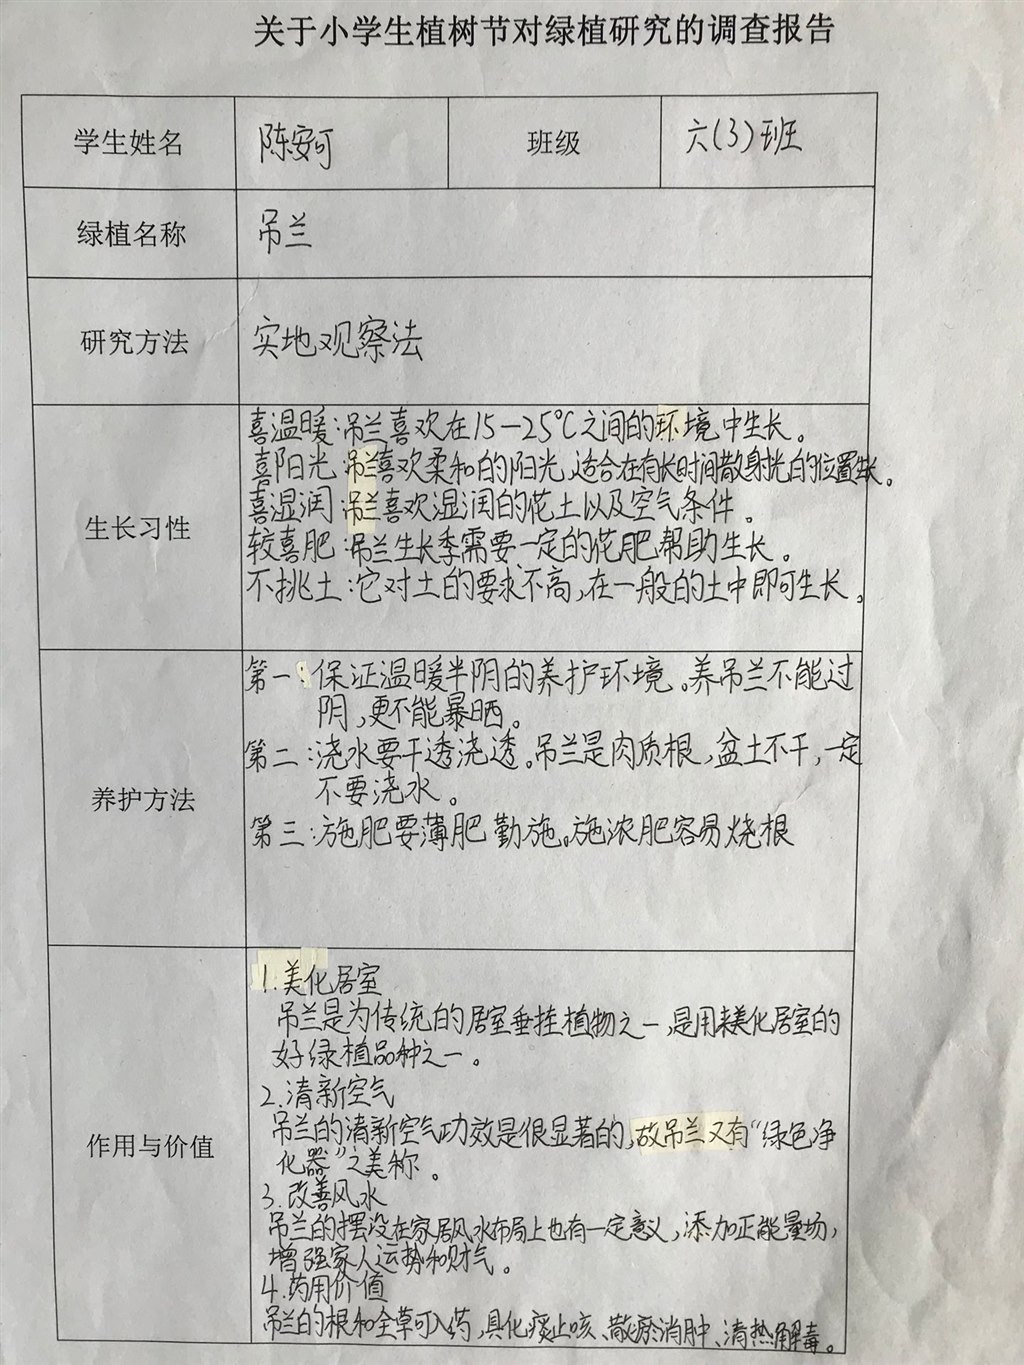 关于小学生植树节对绿植研究的调查报告
学生姓名 陈安可 班级 六(3)班
绿植名称 吊兰
研究方法 实地观察法
生长习性
喜温暖:吊兰喜欢在15—25°C之间的环境中生长。
喜阳光:吊兰喜欢柔和的阳光,适合在有长时间散射光的位置生长。
喜湿润:吊兰喜欢湿润的花土以及空气条件。
较喜肥:吊兰生长季需要一定的花肥帮助生长。
不挑土:它对土的要求不高,在一般的土中即可生长。
养护方法
第一:保证温暖半阴的养护环境。养吊兰不能过
阴,更不能暴晒。
第二:浇水要干透浇透。吊兰是肉质根,盆土不干,一定
不要浇水。
第三:施肥要薄肥勤施。施浓肥容易烧根
作用与价值
1.美化居室
吊兰是为传统的居室垂挂植物之一,是用来美化居室的
好绿植品种之一。
2.清新空气
吊兰的清新空气功效是很显著的,故吊兰又有“绿色净
化器”之美称。
3.改善风水
吊兰的摆设在家居风水布局上也有一定意义,添加正能量场,
增强家人运势和财气。
4.药用价值
吊兰的根和全草可入药,具化痰止咳、散瘀消肿、清热解毒。